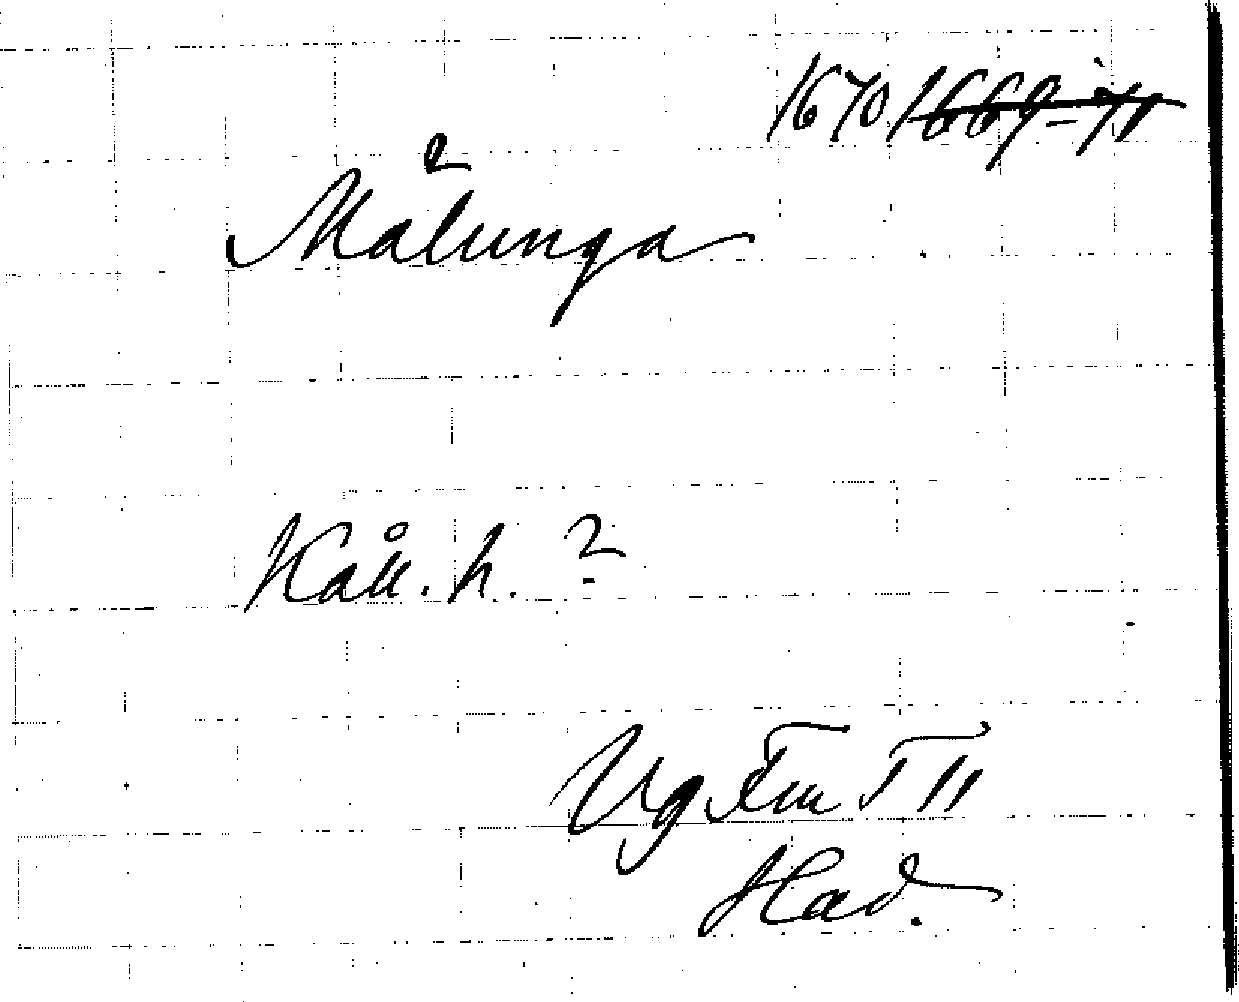 1670 1669-71
Målunga
Kåll. h. ?
Vg Tm T 11
Had.